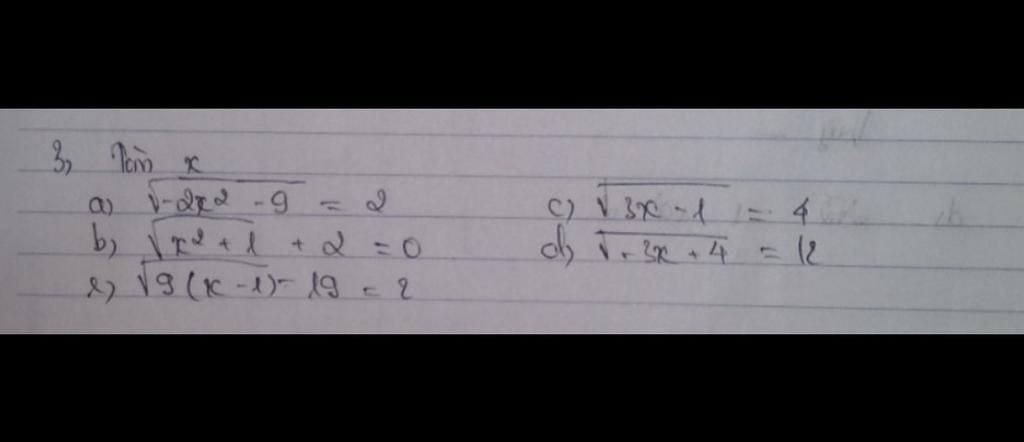 3, Tìm x
a) √-2x² - 9 = 2 c) √3x - 1 = 4
b) √x² + 1 + 2 = 0 d) √-3x + 4 = 12
e) √9(x - 1) - 19 = 2